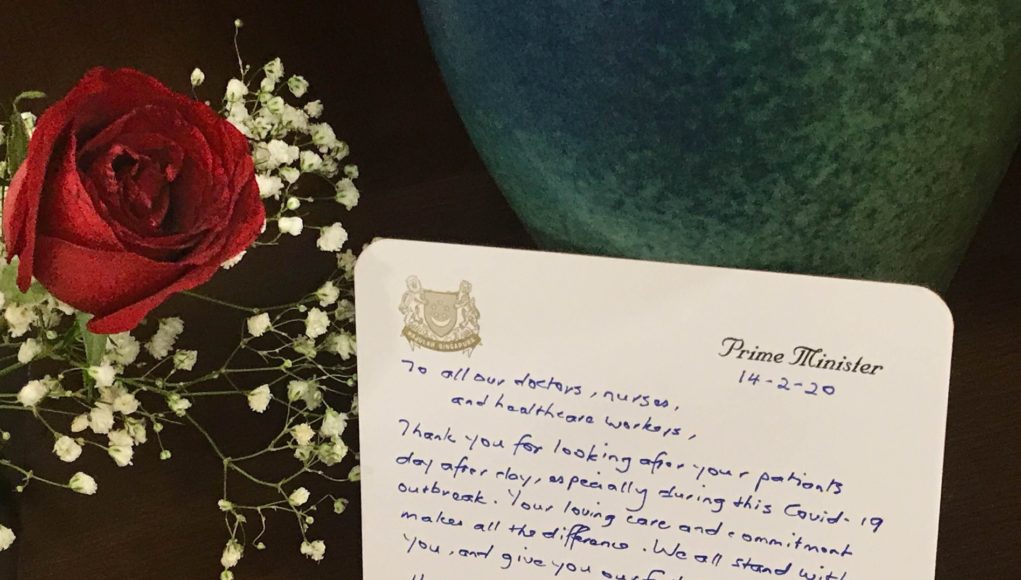 MAJULAH SINGAPURA
Prime Minister
14-2-20
To all our doctors, nurses,
and healthcare workers,
Thank you for looking after your patients
day after day, especially during this Covid-19
outbreak. Your loving care and commitment
makes all the difference. We all stand with
you, and give you our